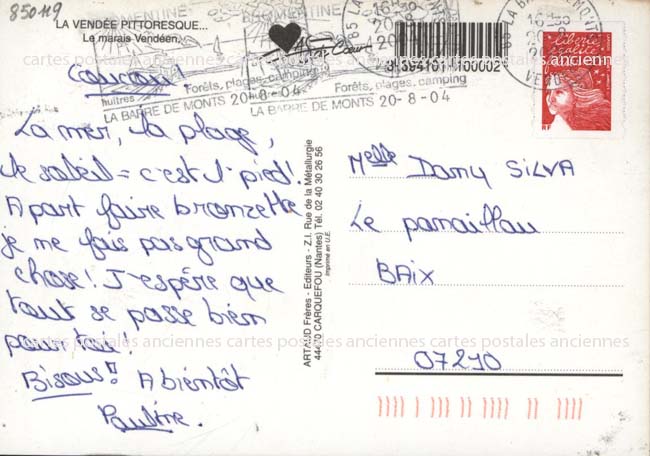 850119
LA VENDÉE PITTORESQUE...
Le marais Vendéen.
Coucou!
La mer, la plage,
le soleil = c'est l'pied!
A part faire bronzette
je me fais pas grand
chose! J'espère que
tout se passe bien
pour toi!
Bisous!! A bientôt
Pauline.
huîtres
Forêts, plages, camping
LA BARRE DE MONTS 20-8-04
Forêts, plages, camping
LA BARRE DE MONTS 20-8-04
3 394101 100002
ARTAUD Frères - Editeurs - Z.I. Rue de la Métallurgie
44470 CARQUEFOU (Nantes) Tél. 02 40 30 26 56
Imprimé en U.E.
RF
Melle Dany SILVA
Le panaillau
BAIX
07210
cartes postales anciennes cartes postales anciennes cartes postales anciennes
cartes postales anciennes cartes postales anciennes cartes postales anciennes